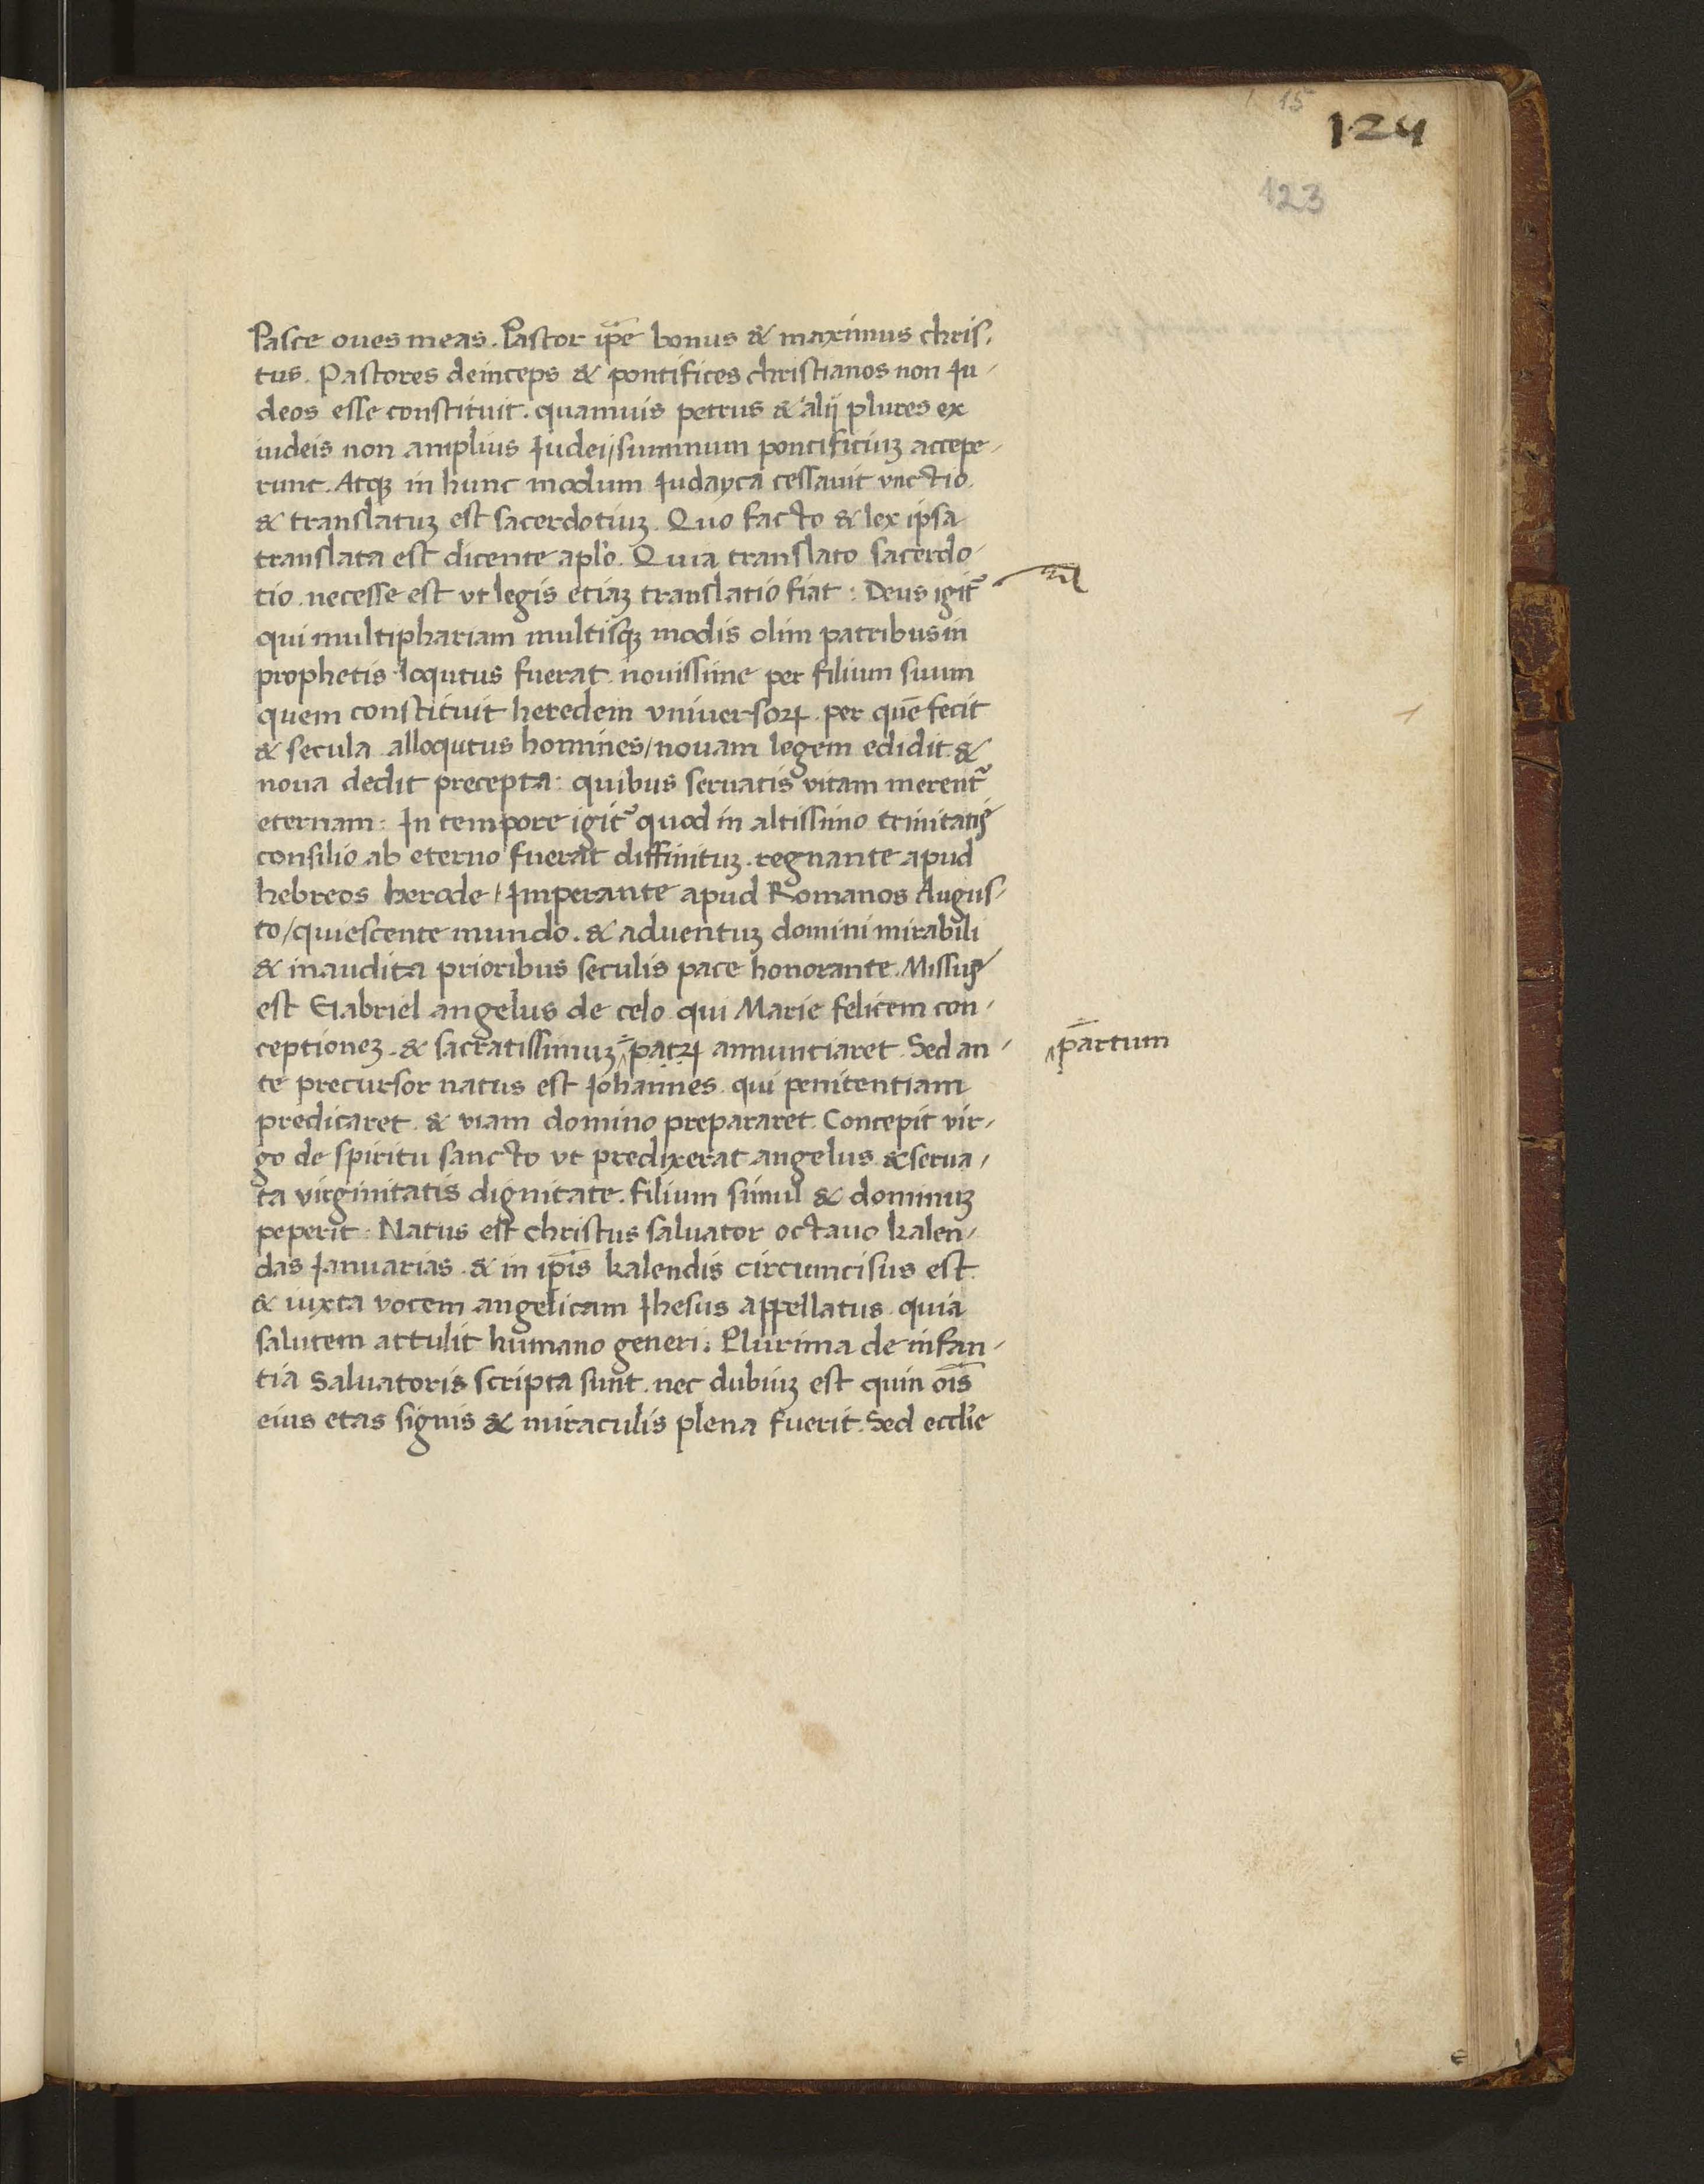 15
124
123
Pasce oues meas. Pastor ip̄e bonus & maximus chris-
tus. Pastores deinceps & pontifices christianos non Iu-
deos esse constituit. quamuis petrus & alij plures ex
iudeis non amplius Iudei/ summum pontificiuꝫ accepe-
runt. Atqꝫ in hunc modum Iudayca cessauit vnctio
& translatuꝫ est sacerdotiuꝫ. Quo facto & lex ipsa
translata est dicente apl'o. Quia translato sacerdo-
tio necesse est vt legis etiaꝫ translatio fiat: Deus igit᷑
qui multiphariam multisqꝫ modis olim patribus in
prophetis loqutus fuerat nouissime per filium suum
quem constituit heredem vniuersoꝝ. per quē fecit
& secula alloqutus homines/ nouam legem edidit &
noua dedit precepta: quibus seruatis vitam merent᷑
eternam: In tempore igit᷑ quod in altissimo trinitatis
consilio ab eterno fuerat diffinituꝫ. regnante apud
hebreos herode/ Imperante apud Romanos Augus-
to/ quiescente mundo. & aduentuꝫ domini mirabili
& inaudita prioribus seculis pace honorante. Missus
est Gabriel angelus de celo qui Marie felicem con-
ceptioneꝫ. & sacratissimuꝫ patꝝ annuntiaret. Sed an-
partum
te precursor natus est Iohannes qui penitentiam
predicaret & viam domino prepararet. Concepit vir-
go de spiritu sancto vt predixerat angelus & serua-
ta virginitatis dignitate. filium simul & dominuꝫ
peperit: Natus est christus saluator octauo kalen-
das Ianuarias & in ip̄is kalendis circumcisus est
& iuxta vocem angelicam Ihesus appellatus quia
salutem attulit humano generi. Plurima de infan-
tia Saluatoris scripta sunt. nec dubiuꝫ est quin oīs
eius etas signis & miraculis plena fuerit. Sed eccl'ie